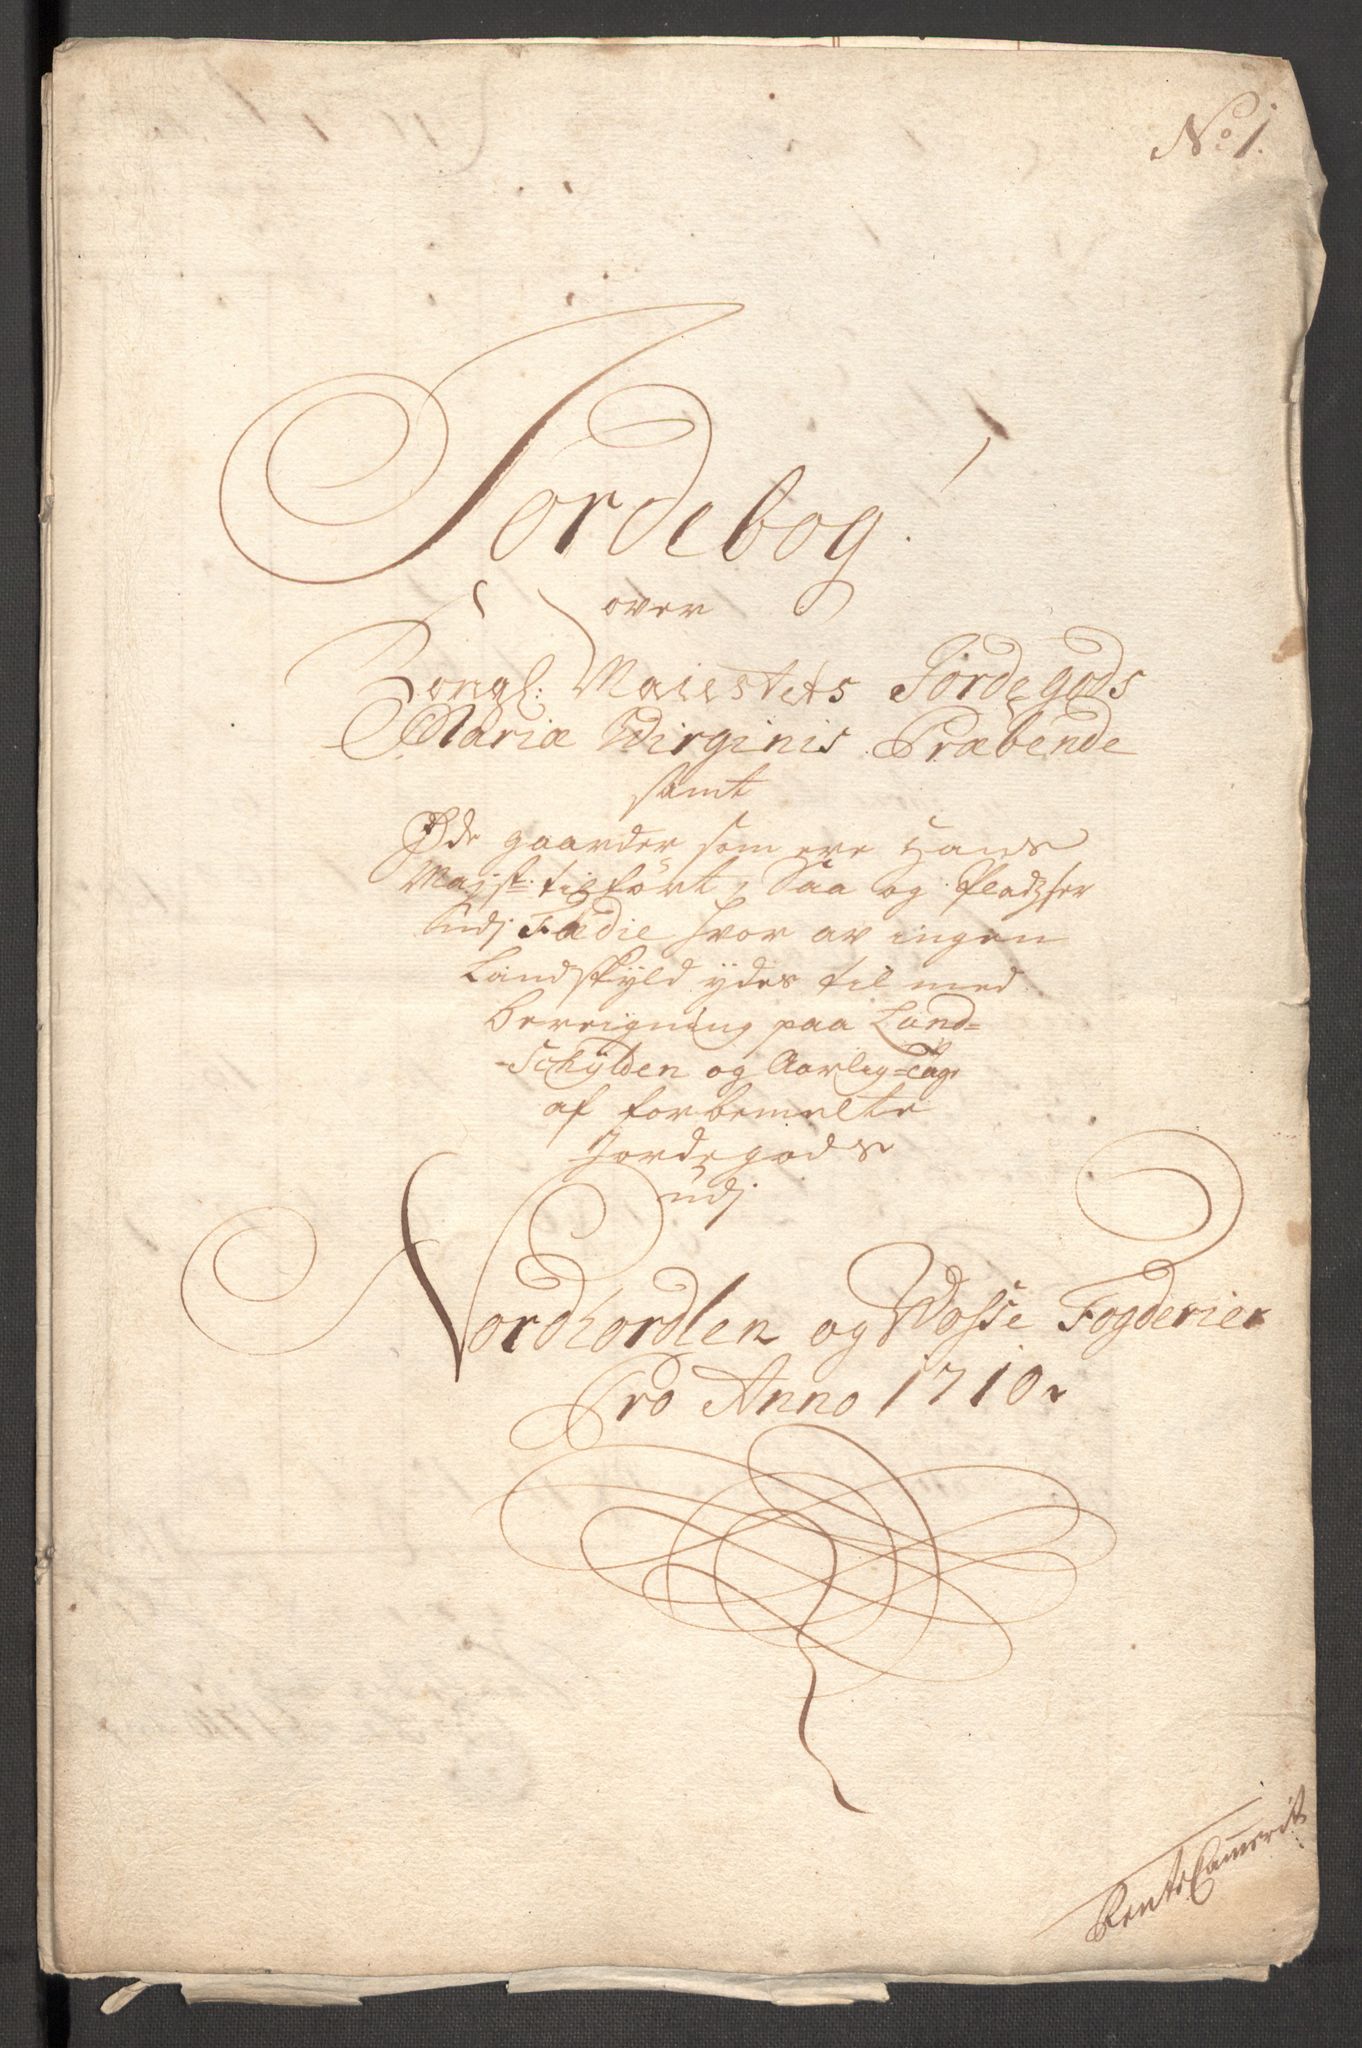 No: 1.
Jordebog
over
Kongl: Maiestets Jordegods
Mariæ Virginis Præbende
samt
Øde gaarder som ere Hans
Mayst: tilført, Saa og Pladzser
udj Fædie hvor av ingen
Landskyld ydes til med
bereigning paa Land-
-Schÿlden og Aarlig-Tage
af forbemelte
Jordegods
udj
Nordhordlen og Wosse Fogderier
Pro Anno 1710
Rente Cammerit